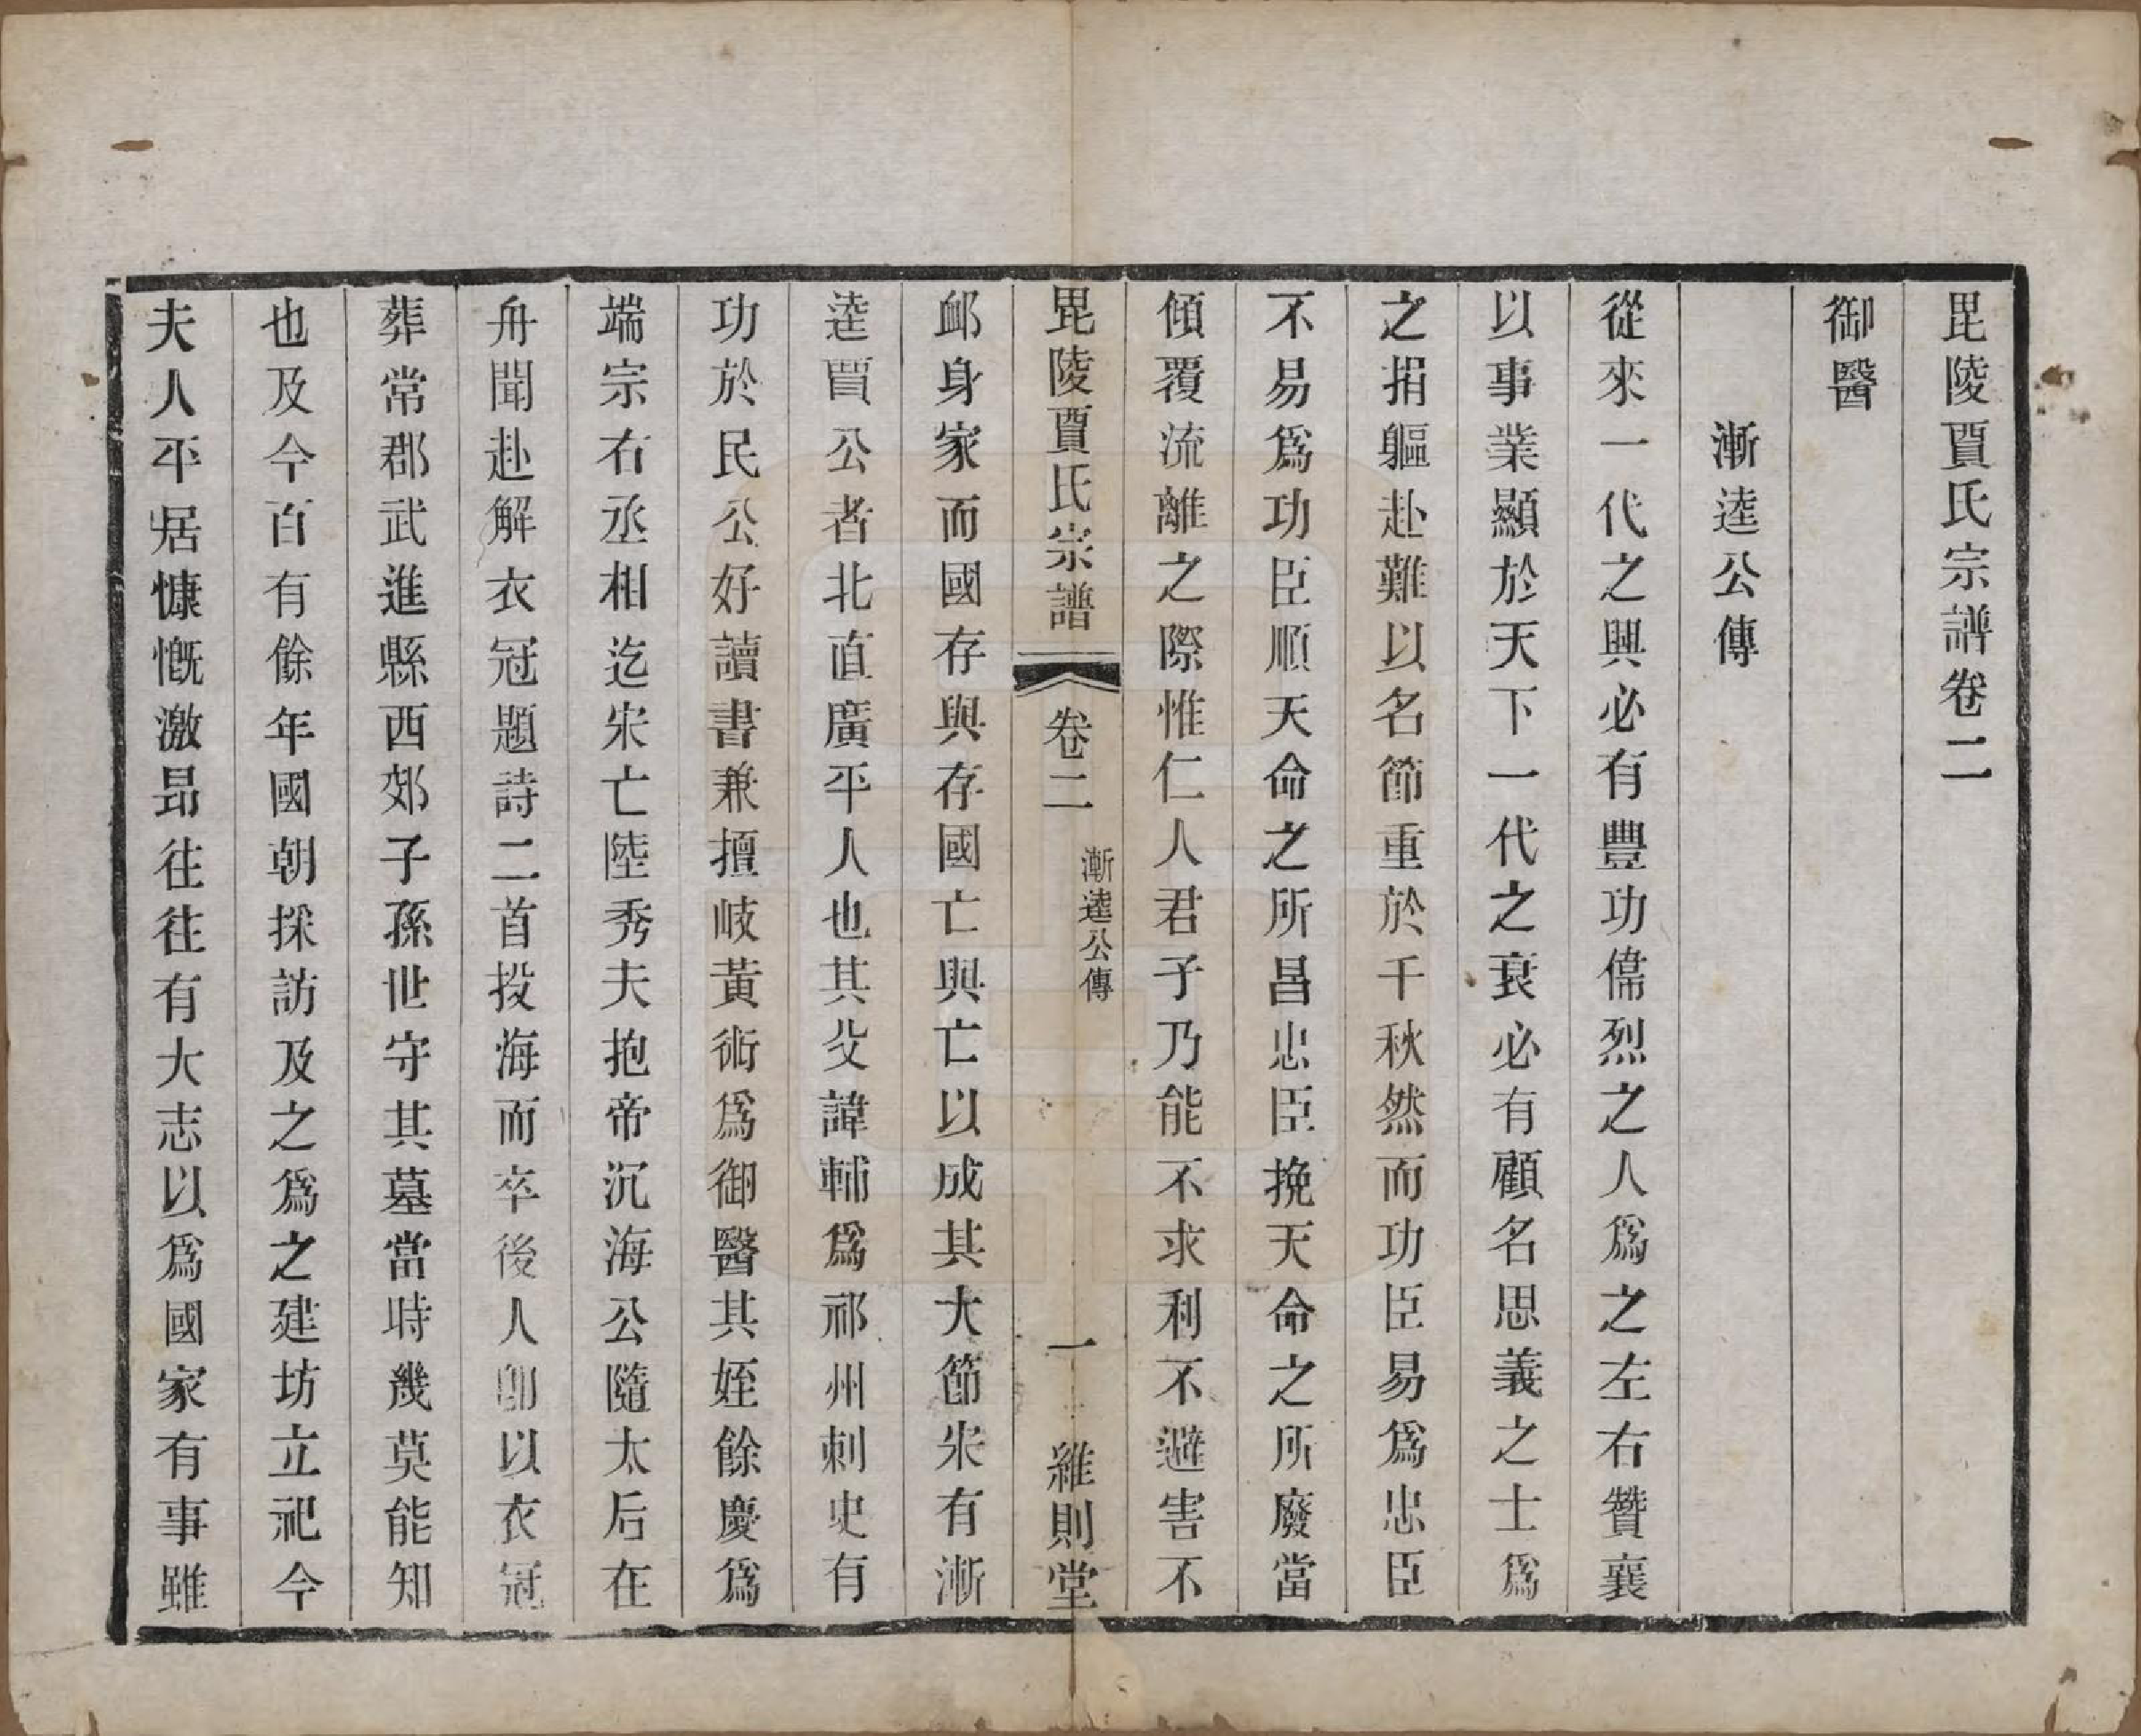 毘陵賈氏宗譜卷二
御醫
漸逵公傳
從來一代之興必有豐功偉烈之人爲之左右贊襄
以事業顯於天下一代之衰必有顧名思義之士爲
之捐軀赴難以名節重於千秋然而功臣易爲忠臣
不易爲功臣順天命之所昌忠臣挽天命之所廢當
傾覆流離之際惟仁人君子乃能不求利不避害不
毘陵賈氏宗譜 卷二 漸逵公傳 一 維則堂
邺身家而國存與存國亡與亡以成其大節宋有漸
逵賈公者北直廣平人也其父諱輔爲祁州刺史有
功於民公好讀書兼擅岐黃術爲御醫其姪餘慶爲
端宗右丞相迄宋亡陸秀夫抱帝沉海公隨太后在
舟聞赴解衣冠題詩二首投海而卒後人卽以衣冠
葬常郡武進縣西郊子孫世守其墓當時幾莫能知
也及今百有餘年國朝採訪及之爲之建坊立祀今
夫人平居慷慨激昂往往有大志以爲國家有事雖